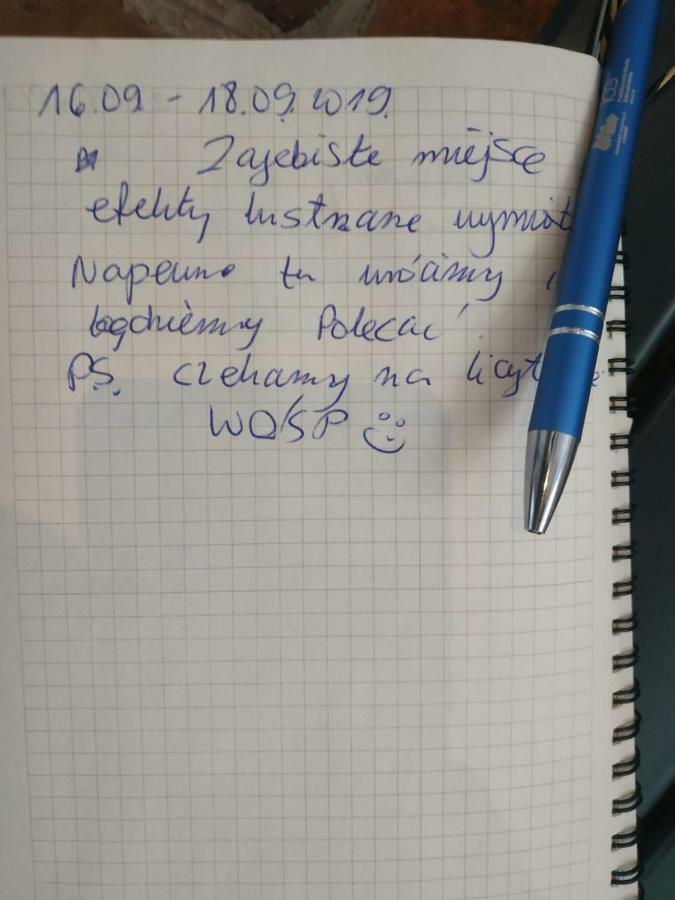 16.09 - 18.09.2019.
Zajebiste miejsce
efekty lustrzane wymiat
Napewno tu wrócimy i
będziemy Polecać
PS. czekamy na licyt
WOŚP